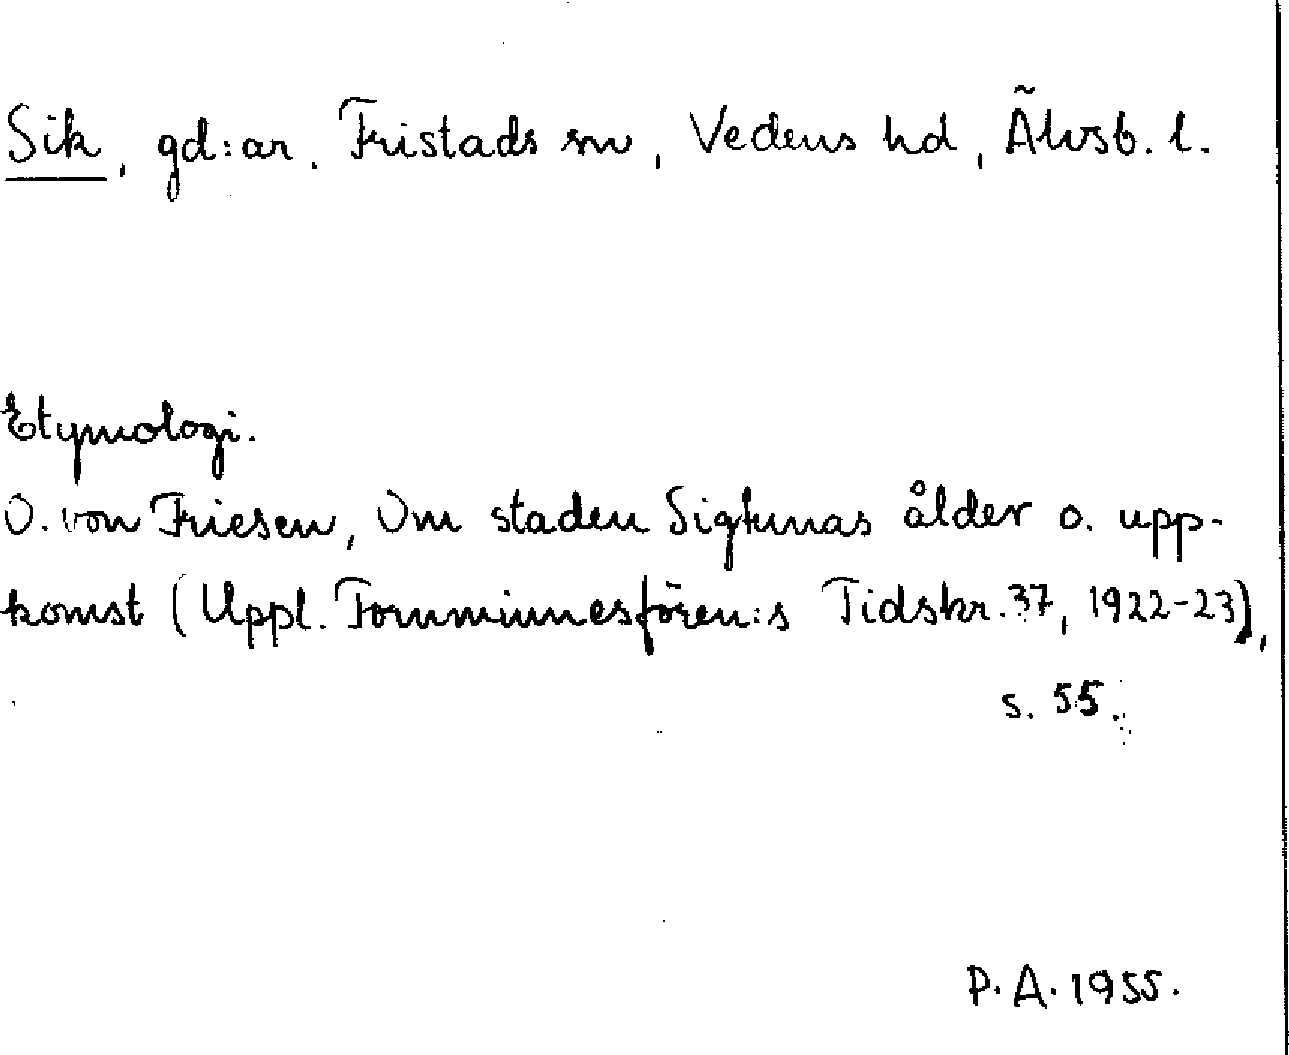 Sik, gd:ar. Fristads sn, Vedens hd, Älvsb. l.
Etymologi.
O. von Friesen, Om staden Sigtunas ålder o. upp-
komst (Uppl. Fornminnesfören:s Tidskr. 37, 1922-23),
s. 55.
P. A. 1955.